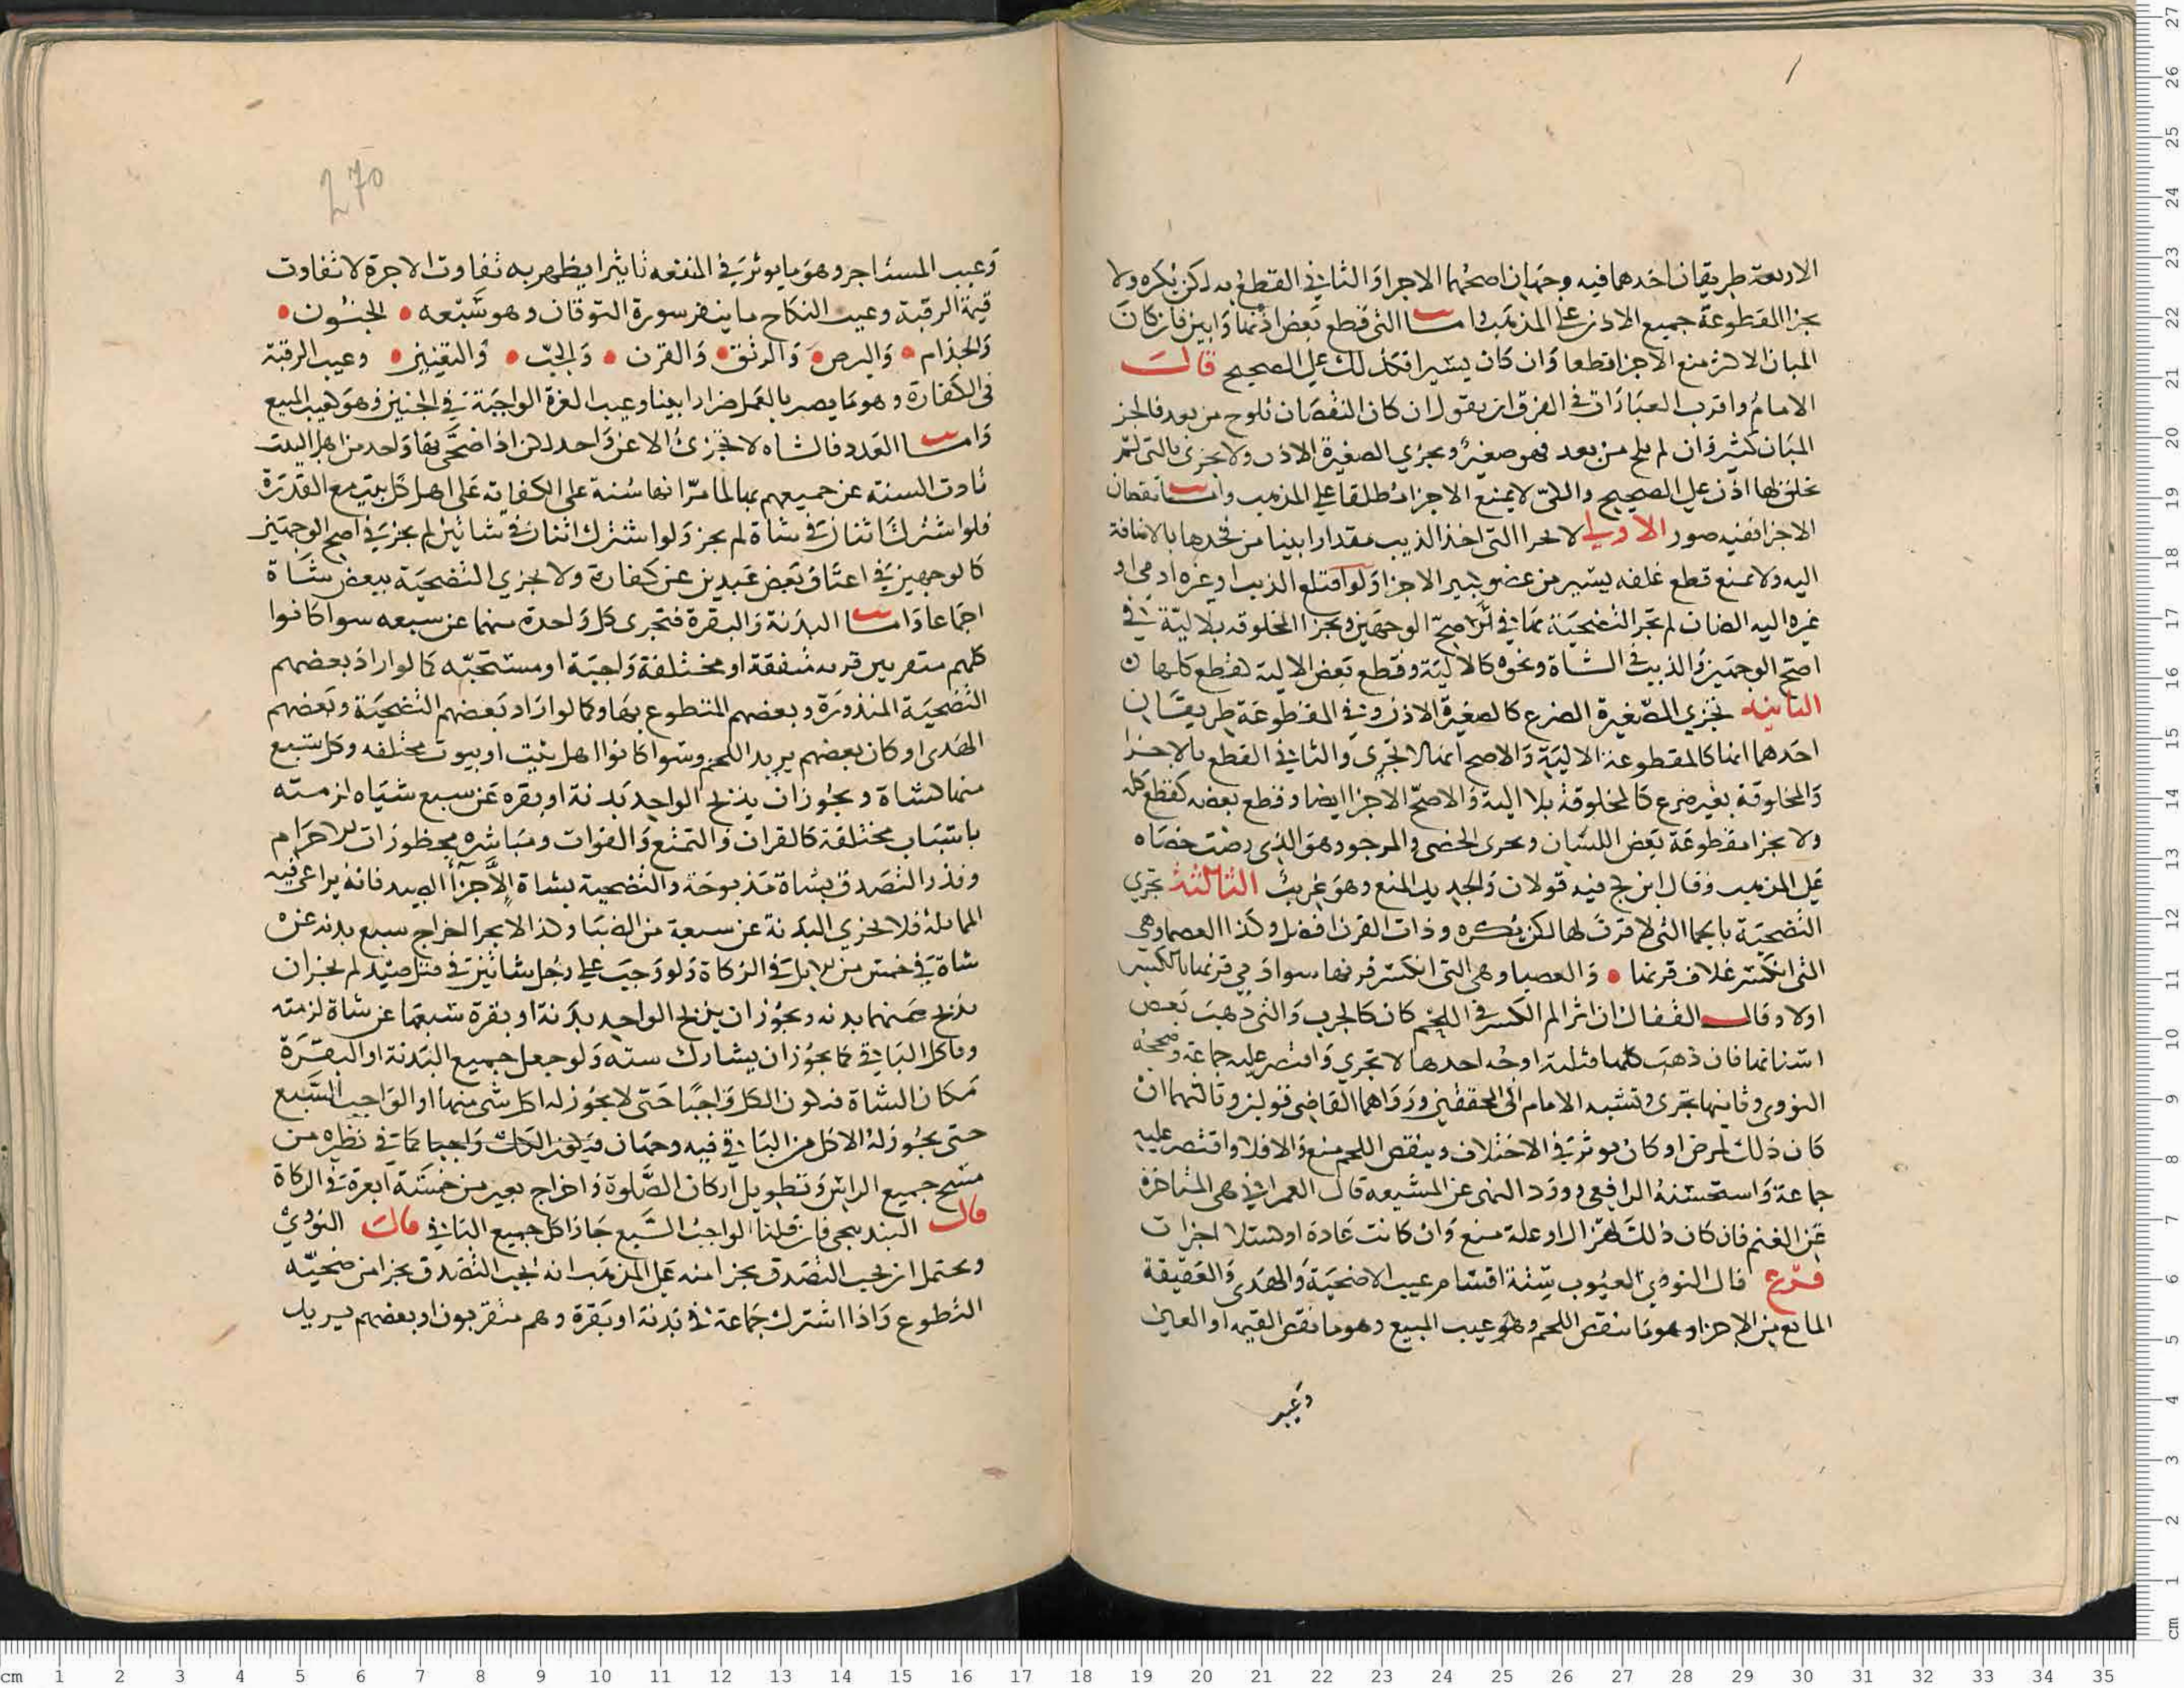 الاربعة طريقان احدهما فيه وجهان اصحهما الاجزا والثاني القطع به لكن يكره ولا
يجزا القطوعة جميع الاذن على المذهب واما التي قطع بعض اذنها وابين فان كان
المبان الاكثر منع الاجزا قطعا وان كان يسيرا فكذلك على الصحيح قالت
الامام واقرب العبارات في الفرق ان يقول ان كان النقصان يلوح من بعد فالجز
المبان كثير وان لم يلح من بعد فهو صغير وتجزي الصغيرة الاذن ولا تجزي بالتي لم
تخلق لها اذن على الصحيح والكي لا يمنع الاجزا مطلقا على المذهب واما نقصان
الاجزا ففيه صور الاولى لا تجزا التي اخذ الذيب مقدارا بينا من فخدها بالاضافة
اليه ولا يمنع قطع غلفه يسير من عضو كبير الاجزا ولو اقتلع الذيب او غيره ادمي او
غيره اليه الضان لم تجز التضحية بها في اصح الوجهين وتجزا المخلوقه بلا الية في
اصح الوجهين والذنب في الشاة ونحوه كالالية وقطع بعض الالية كقطع كلها
الثانية تجزي الصغيرة الضرع كالصغيرة الاذن وفي المقطوعة طريقان
احدهما انها كالمقطوعة الالية والاصح انها لا تجزي والثاني القطع بالاجزا
والمخلوقة بغير ضرع كالمخلوقة بلا الية والاصح الاجزا ايضا وقطع بعضه كقطع كله
ولا يجزا مقطوعة بعض اللسان ويجري الخصي والموجود هو الذي رضت خصاه
على المذهب وقال ابن كج فيه قولان والجديد المنع وهو غريب الثالثة تجزي
التضحية بالجما التي لا قرن لها لكن يكره وذات القرن افضل وكذا العصما وهي
التي انكسر غلاف قرنها • والعصبا وهي التي انكسر قرنها سوا دمي قرنها بالكسر
اولا وقال القفال ان اثر الم الكسر في اللحم كان كالجرب والتي ذهب بعض
اسنانها فان ذهب كلها فثلثة اوجه احدها لا تجزي واقتصر عليه جماعة وصححه
النووي وثانيها تجزي ونسبه الامام الى المحققين ورواهما القاضي قولين وثالثهما ان
كان ذلك لمرض او كان يوثر في الاختلاف وينقص اللحم منع والا فلا واقتصر عليه
جماعة واستحسنه الرافعي وورد النهي عن المشيعه قال العمراني هي المتاخرة
عن الغنم فان كان ذلك لهزال او علة منع وان كانت عادة او كسلا اجزات
فرع قال النووي العيوب ستة اقسام عيب الاضحية والهدي والعقيقة
المانع من الاجزا وهو ما ينقص اللحم وهو عيب المبيع وهو ما نقص القيمه او العين
وعيب
270
وعيب المستاجر وهو ما يوثر في المنفعه تاثيرا يظهر به تفاوت الاجرة لا تفاوت
قيمة الرقبة وعيب النكاح ما ينفر سورة التوقان وهو سبعه • الجنون •
والجذام • والبرص • والرتق • والقرن • والجب • والتعنين • وعيب الرقبة
في الكفارة وهو ما يضر بالعمل ضرارا بينا وعيب الغرة الواجبة في الجنين وهو كعيب المبيع
واما العدد فالشاه لا تجزئ الا عن واحد لكن اذا ضحى بها واحد من اهل البيت
تادت السنة عن جميعهم بها لما مر انها سنة على الكفاية على اهل كل بيت مع القدرة
فلو اشترك اثنان في شاة لم يجز ولو اشترك اثنان في شاتين لم يجز في اصح الوجهين
كالوجهين في اعتاق بعض عبدين عن كفارة ولا تجزي التضحية ببعض شاة
اجماعا واما البدنة والبقرة فتجزي كل واحدة منهما عن سبعه سوا كانوا
كلهم متقربين قربه متفقة او مختلفة واجبة او مستحبه كما لو اراد بعضهم
التضحية المنذورة وبعضهم المتطوع بها وكما لو اراد بعضهم التضحية وبعضهم
الهدى او كان بعضهم يريد اللحم وسوا كانوا اهل بيت او بيوت مختلفه وكل سبع
منها كشاة ويجوز ان يذبح الواحد بدنة او بقره عن سبع شياه لزمته
باسباب مختلفة كالقران والتمتع والفوات ومباشره محظورات الاحرام
ونذر التصدق بشاة مذبوحة والتضحية بشاة الاجزا الصيد فانه يراعى فيه
المماثلة فلا تجزي البدنة عن سبعة من الضبا وكذا لا يجزا اخراج سبع بدنه عن
شاة في خمس من الابل في الزكاة ولو وجب على رجل شاتين في قتل صيد لم يجز ان
يذبح عنهما بدنه ويجوز ان يذبح الواحد بدنة او بقرة سبعها عن شاة لزمته
وياكل الباقي كما يجوز ان يشارك ستة ولو جعل جميع البدنة او البقرة
مكان الشاة فيكون الكل واجبا حتى لا يجوز له اكل شي منها او الواجب السبع
حتى يجوز له الاكل من الباقي فيه وجهان فيكون الكل واجبا كما في نظيره من
مسح جميع الراس وتطويل اركان الصلوة واخراج بعير من خمسة ابعرة في الزكاة
قال البندنيجي فان قلنا الواجب السبع جاز اكل جميع الباقي قالت النووي
ويحتمل ان يجب التصدق بجزا منه على المذهب انه يجب التصدق بجزا من ضحية
التطوع واذا اشترك جماعة في بدنة او بقرة وهم متقربون او بعضهم يريد